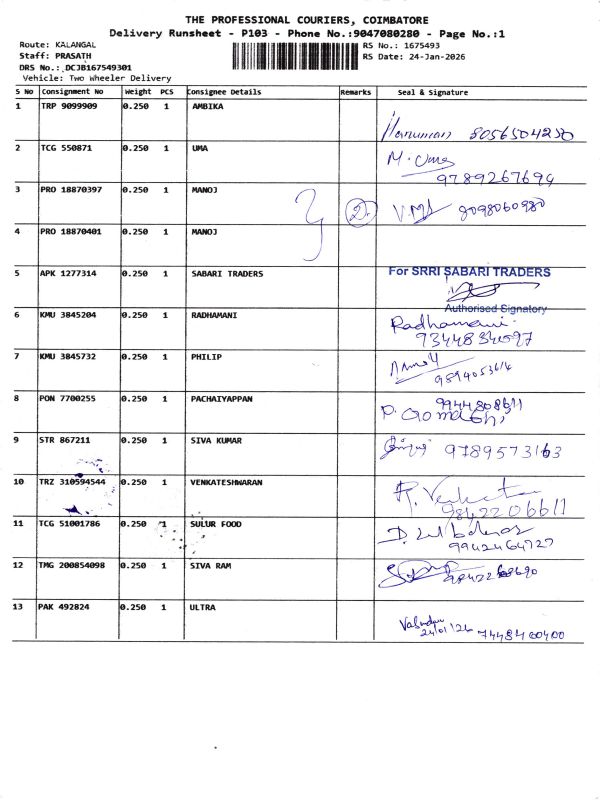 THE PROFESSIONAL COURIERS, COIMBATORE
Delivery Runsheet - P103 - Phone No.:9047080280 - Page No.:1
Route: KALANGAL
Staff: PRASATH
DRS No.: DCJB167549301
Vehicle: Two Wheeler Delivery
RS No.: 1675493
RS Date: 24-Jan-2026
S No Consignment No Weight PCS Consignee Details Remarks Seal & Signature
1 TRP 9099909 0.250 1 AMBIKA
Hanuman 8056504250
2 TCG 550871 0.250 1 UMA
M. Uma
9789267694
3 PRO 18870397 0.250 1 MANOJ 2. V.M 8098060980
4 PRO 18870401 0.250 1 MANOJ
5 APK 1277314 0.250 1 SABARI TRADERS
For SRRI SABARI TRADERS
Authorised Signatory
6 KMU 3845204 0.250 1 RADHAMANI
Radhamani
9344834597
7 KMU 3845732 0.250 1 PHILIP
9894053614
8 PON 7700255 0.250 1 PACHAIYAPPAN
9944808611
P. Gomathi
9 STR 867211 0.250 1 SIVA KUMAR
9789573163
10 TRZ 310594544 0.250 1 VENKATESHWARAN
R. Venkat
9842206611
11 TCG 51001786 0.250 1 SULUR FOOD
9942464727
12 TMG 200854098 0.250 1 SIVA RAM
13 PAK 492824 0.250 1 ULTRA
24/01/26 7448460400